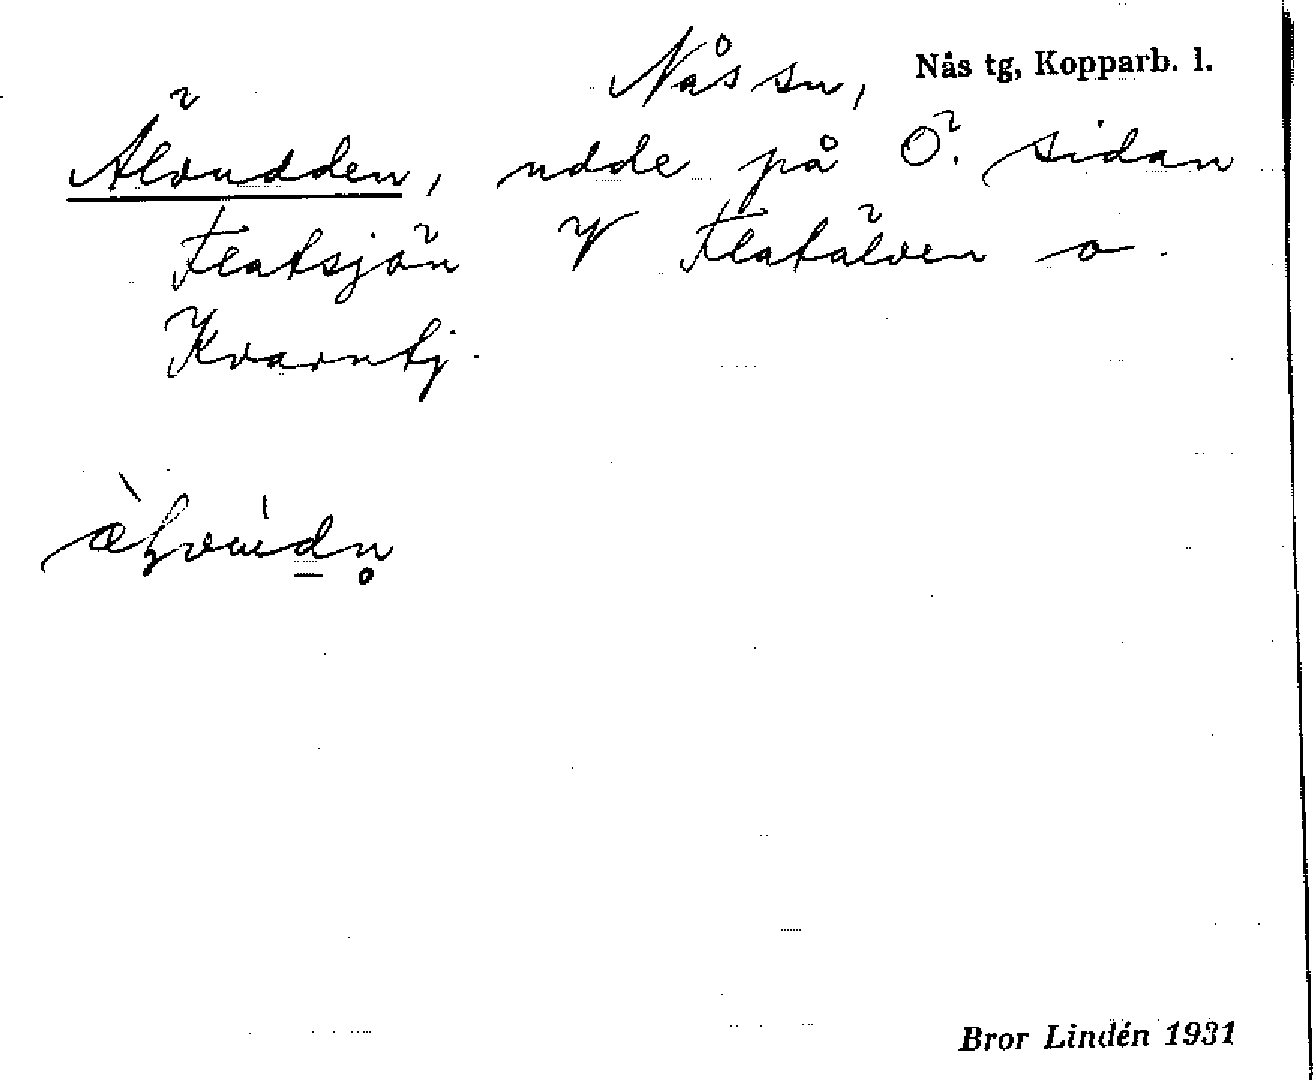 Nås sn, Nås tg, Kopparb. l.
Älvudden, udde på Ö. sidan
Flatsjön V Flatälven o.
Kvarntj.
Bror Lindén 1931